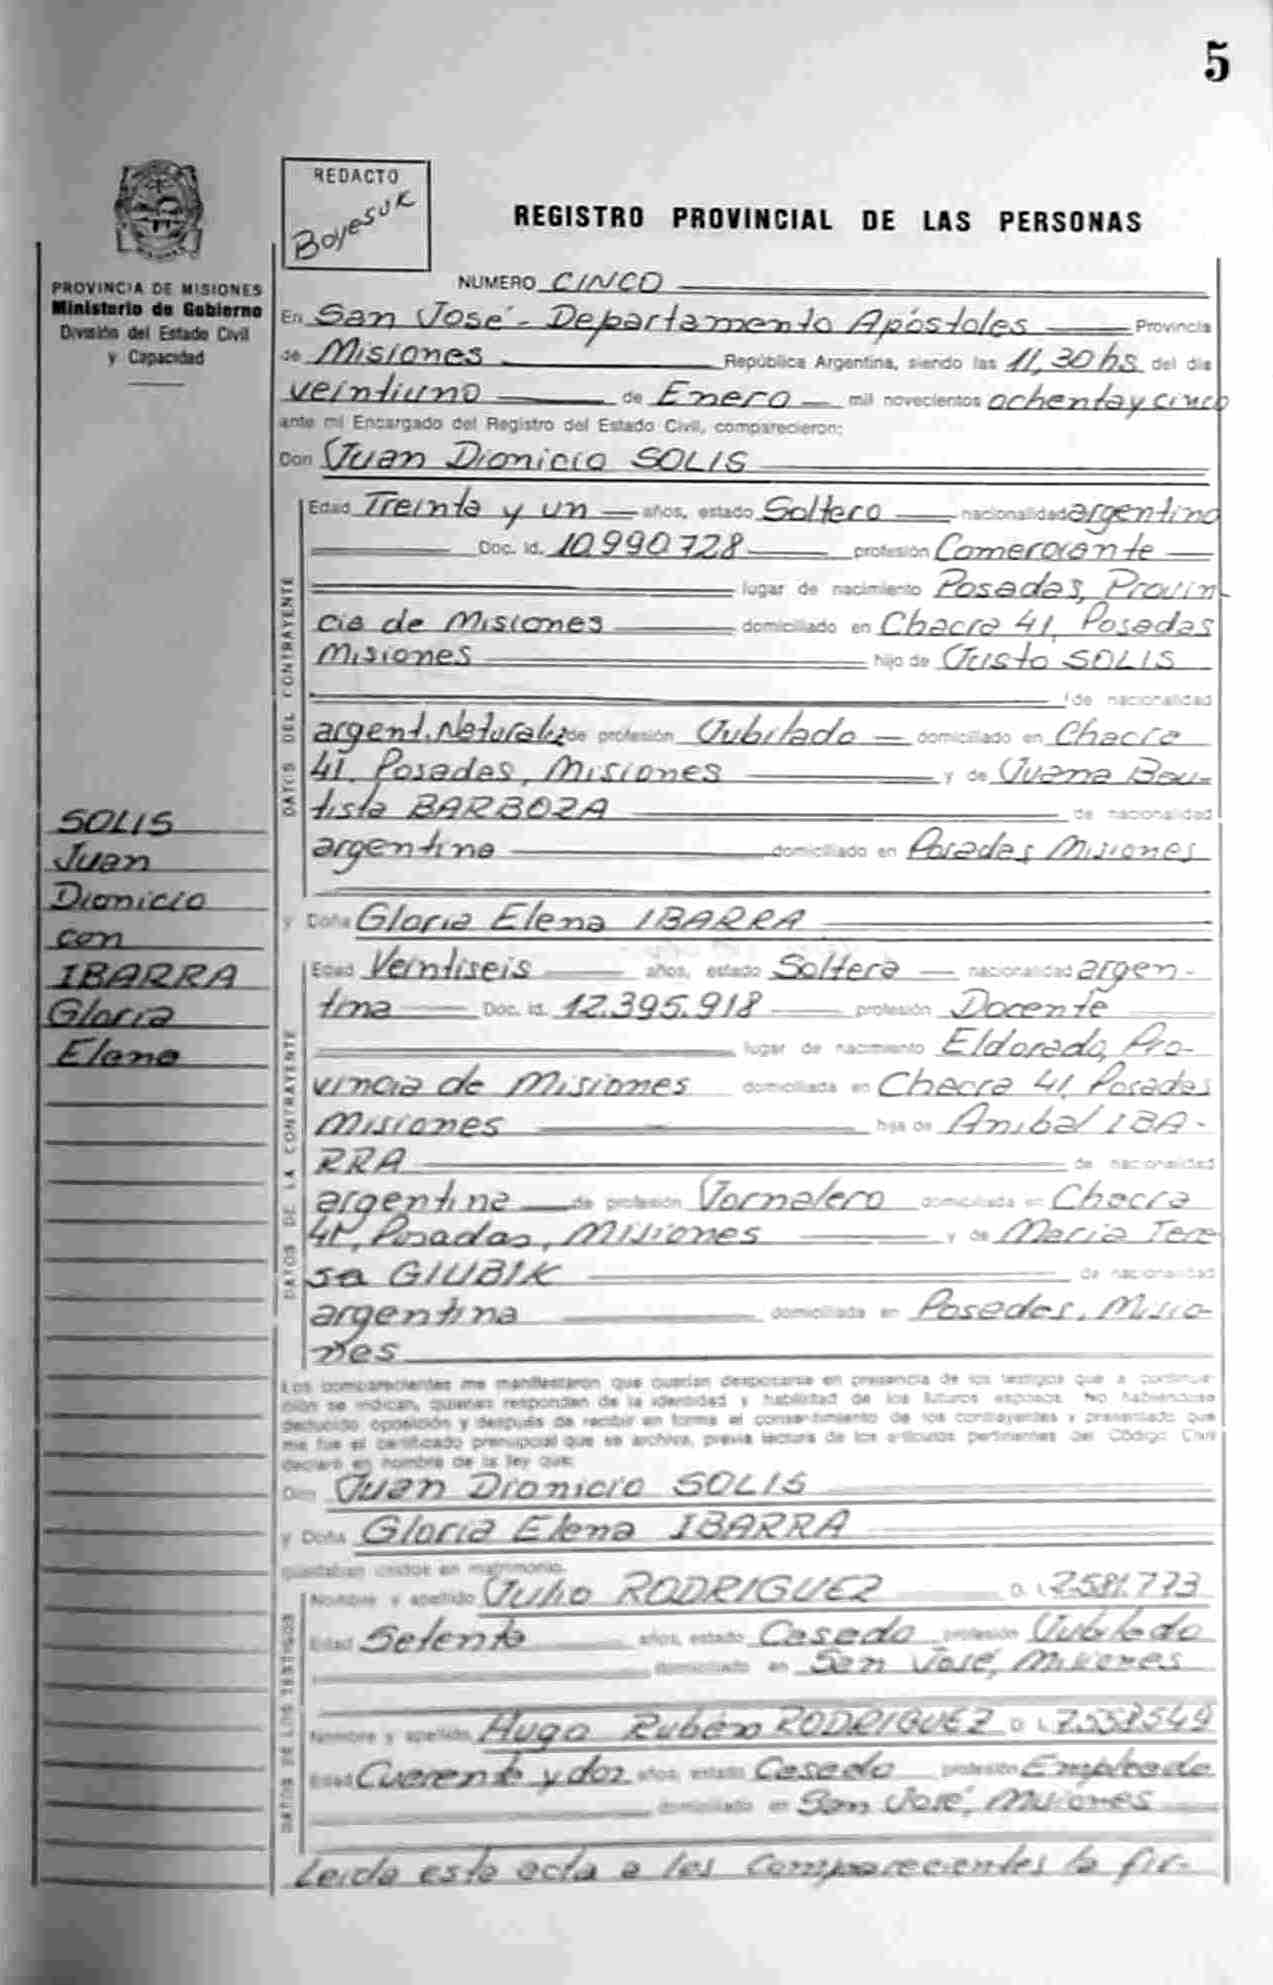 5
REDACTO
Boyesuk
REGISTRO PROVINCIAL DE LAS PERSONAS
PROVINCIA DE MISIONES
Ministerio de Gobierno
División del Estado Civil
y Capacidad
NUMERO CINCO
En San José - Departamento Apóstoles Provincia
de Misiones República Argentina, siendo las 11,30 hs del día
veintiuno de Enero mil novecientos ochenta y cinco
ante mi Encargado del Registro del Estado Civil, comparecieron:
Don Juan Dionicio SOLIS
DATOS DEL CONTRAYENTE
Edad Treinta y un años, estado Soltero nacionalidad argentino
Doc. Id. 10990728 profesión Comerciante
lugar de nacimiento Posadas, Provin
cia de Misiones domiciliado en Chacra 41, Posadas
Misiones hijo de Justo SOLIS
de nacionalidad
argent. Naturaliz de profesión Jubilado domiciliado en Chacra
41, Posadas, Misiones y de Juana Bau-
tista BARBOZA de nacionalidad
argentina domiciliado en Posadas Misiones
SOLIS
Juan
Dionicio
con
IBARRA
Gloria
Elena
y Doña Gloria Elena IBARRA
DATOS DE LA CONTRAYENTE
Edad Veintiseis años, estado Soltera nacionalidad argen-
tina Doc. Id. 12.395.918 profesión Docente
lugar de nacimiento Eldorado, Pro-
vincia de Misiones domiciliada en Chacra 41, Posadas
Misiones hija de Anibal IBA-
RRA de nacionalidad
argentina de profesión Jornalero domiciliada en Chacra
41, Posadas, Misiones y de Maria Tere
sa GIUBIK de nacionalidad
argentina domiciliada en Posadas, Misio-
nes
Los comparecientes me manifestaron que querían desposarse en presencia de los testigos que a continua-
ción se indican, quienes responden de la identidad y habilidad de los futuros esposos. No habiéndose
deducido oposición y después de recibir en forma el consentimiento de los contrayentes y presentado que
me fue el certificado prenupcial que se archiva, previa lectura de los artículos pertinentes del Código Civil
declaro en nombre de la ley que:
Don Juan Dionicio SOLIS
y Doña Gloria Elena IBARRA
quedaban unidos en matrimonio.
DATOS DE LOS TESTIGOS
Nombre y apellido Julio RODRIGUEZ D. I. 7.581.773
Edad Setenta años, estado Casado profesión Jubilado
domiciliado en San José, Misiones
Nombre y apellido Hugo Rubén RODRIGUEZ D. I. 7.558.549
Edad Cuarenta y dos años, estado Casado profesión Empleado
domiciliado en San José, Misiones
Leída esta acta a los Comparecientes la fir-